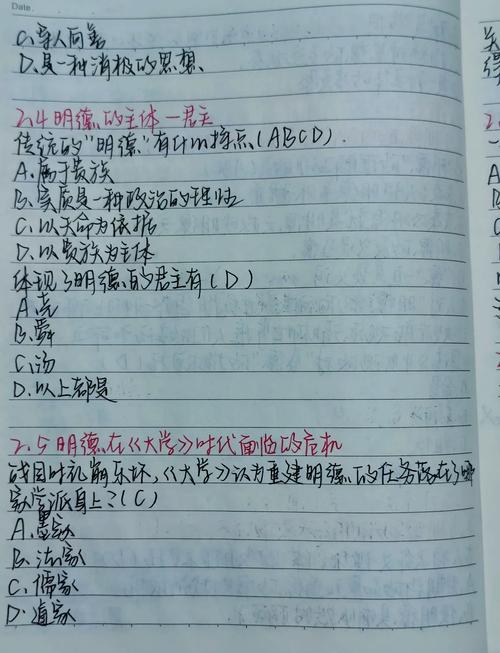 Date.
C.导人向善
D.是一种消极的思想、
2.4 明德的主体—君主
传统的“明德”有什么特点(ABCD).
A.属于贵族
B.实质是一种政治的理性
C.以天命为依据
D.以贵族为主体
体现了明德的君主有(D)
A.尧
B.舜
C.汤
D.以上都是
2.5 明德在《大学》时代面临的危机
战国时礼崩乐坏,《大学》认为重建明德的任务落在了哪
家学派身上?(C)
A.墨家
B.法家
C.儒家
D.道家